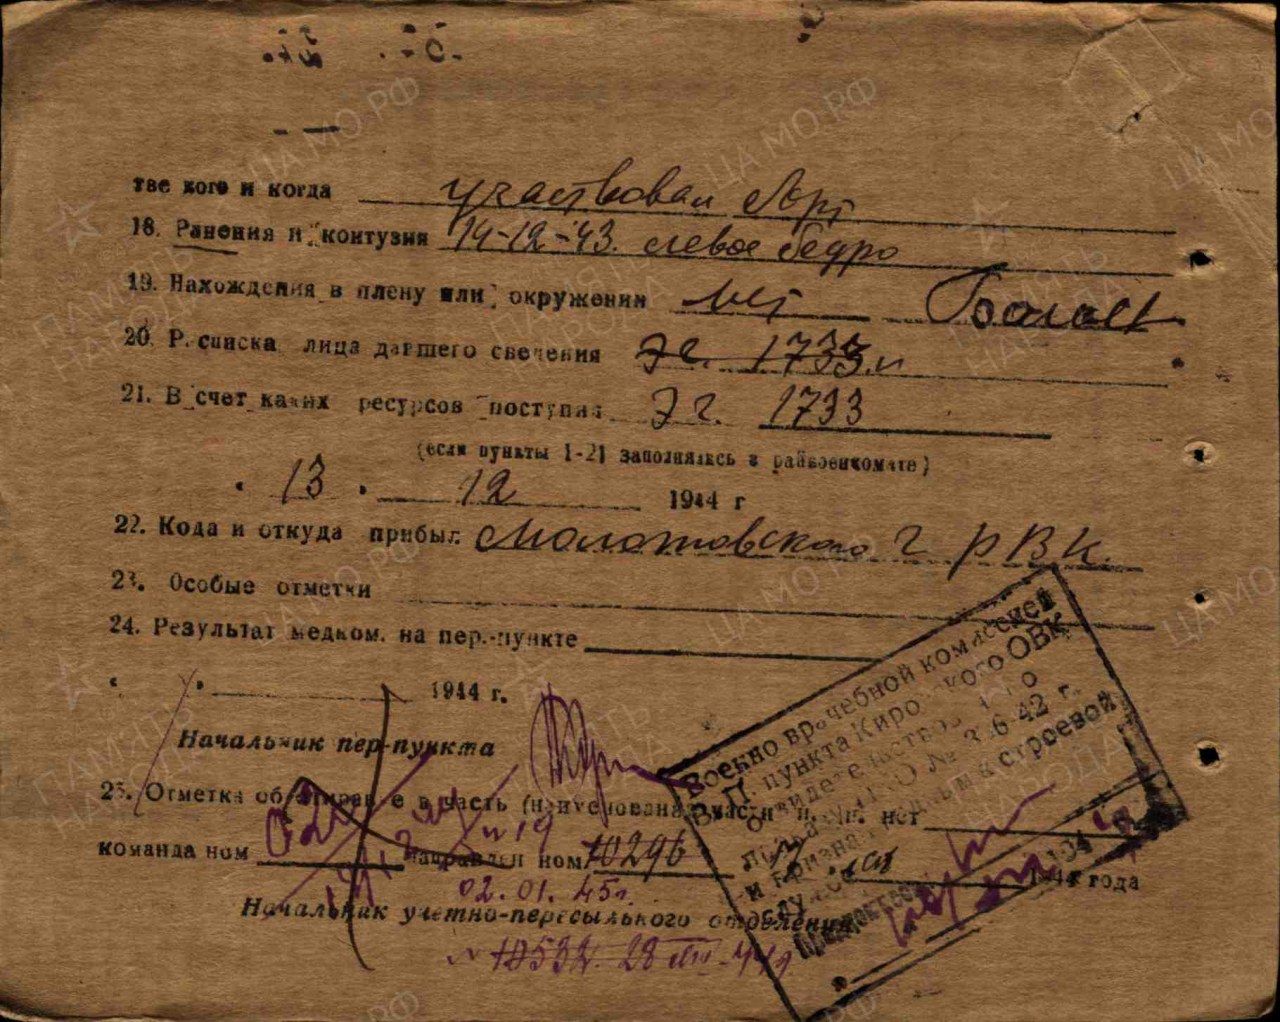 тве кого и когда участвовал
18. Ранения и контузия 14-12-43. левое бедро
19. Нахождения в плену или окружении нет
20. Р.списка лица давшего сведения Эг. 1733
21. В счет каких ресурсов поступил Эг. 1733
(если пункты 1-21 заполнялись в райвоенкомате)
" 13 " 12 1944 г
22. Кода и откуда прибыл Молотовского г РВК.
23. Особые отметки
24. Результат медком. на пер.-пункте
" " 1944 г.
Начальник пер-пункта
25. Отметка об в часть
команда ном 02 направлен ном. 10296 1944 года
02.01.45г.
Начальник учетно-пересыльного отделения
N 10532. 28 XII-44г
Военно врачебной комиссией
В.П. пункта Кировского ОВК
42 г.
строевой
службе
ЦА МО РФ
ПАМЯТЬ НАРОДА